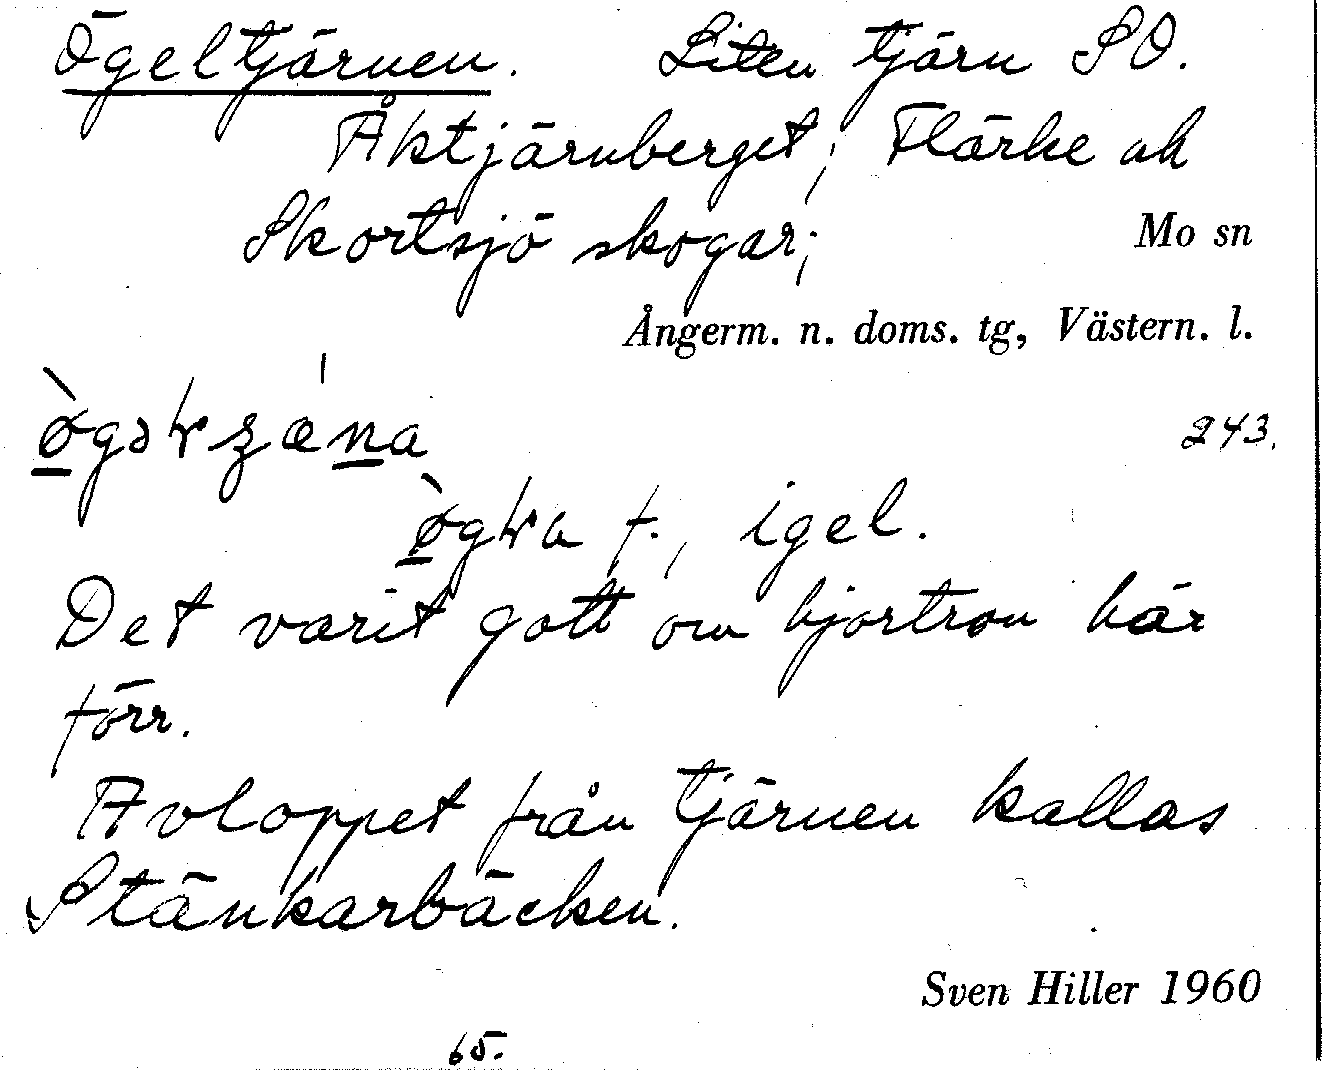 Ögeltjärnen. Liten tjärn SO.
Åktjärnberget; Flärke ok
Skortsjö skogar; Mo sn
Ångerm. n. doms. tg, Västern. l.
243.
f., igel.
Det varit gott om hjortron här
förr.
Avloppet från tjärnen kallas
Stänkarbäcken.
Sven Hiller 1960
65.